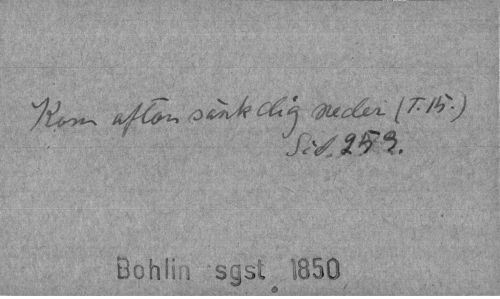 Kom afton sänk dig neder (T. 15.)
Sid. 253.
Bohlin sgst. 1850